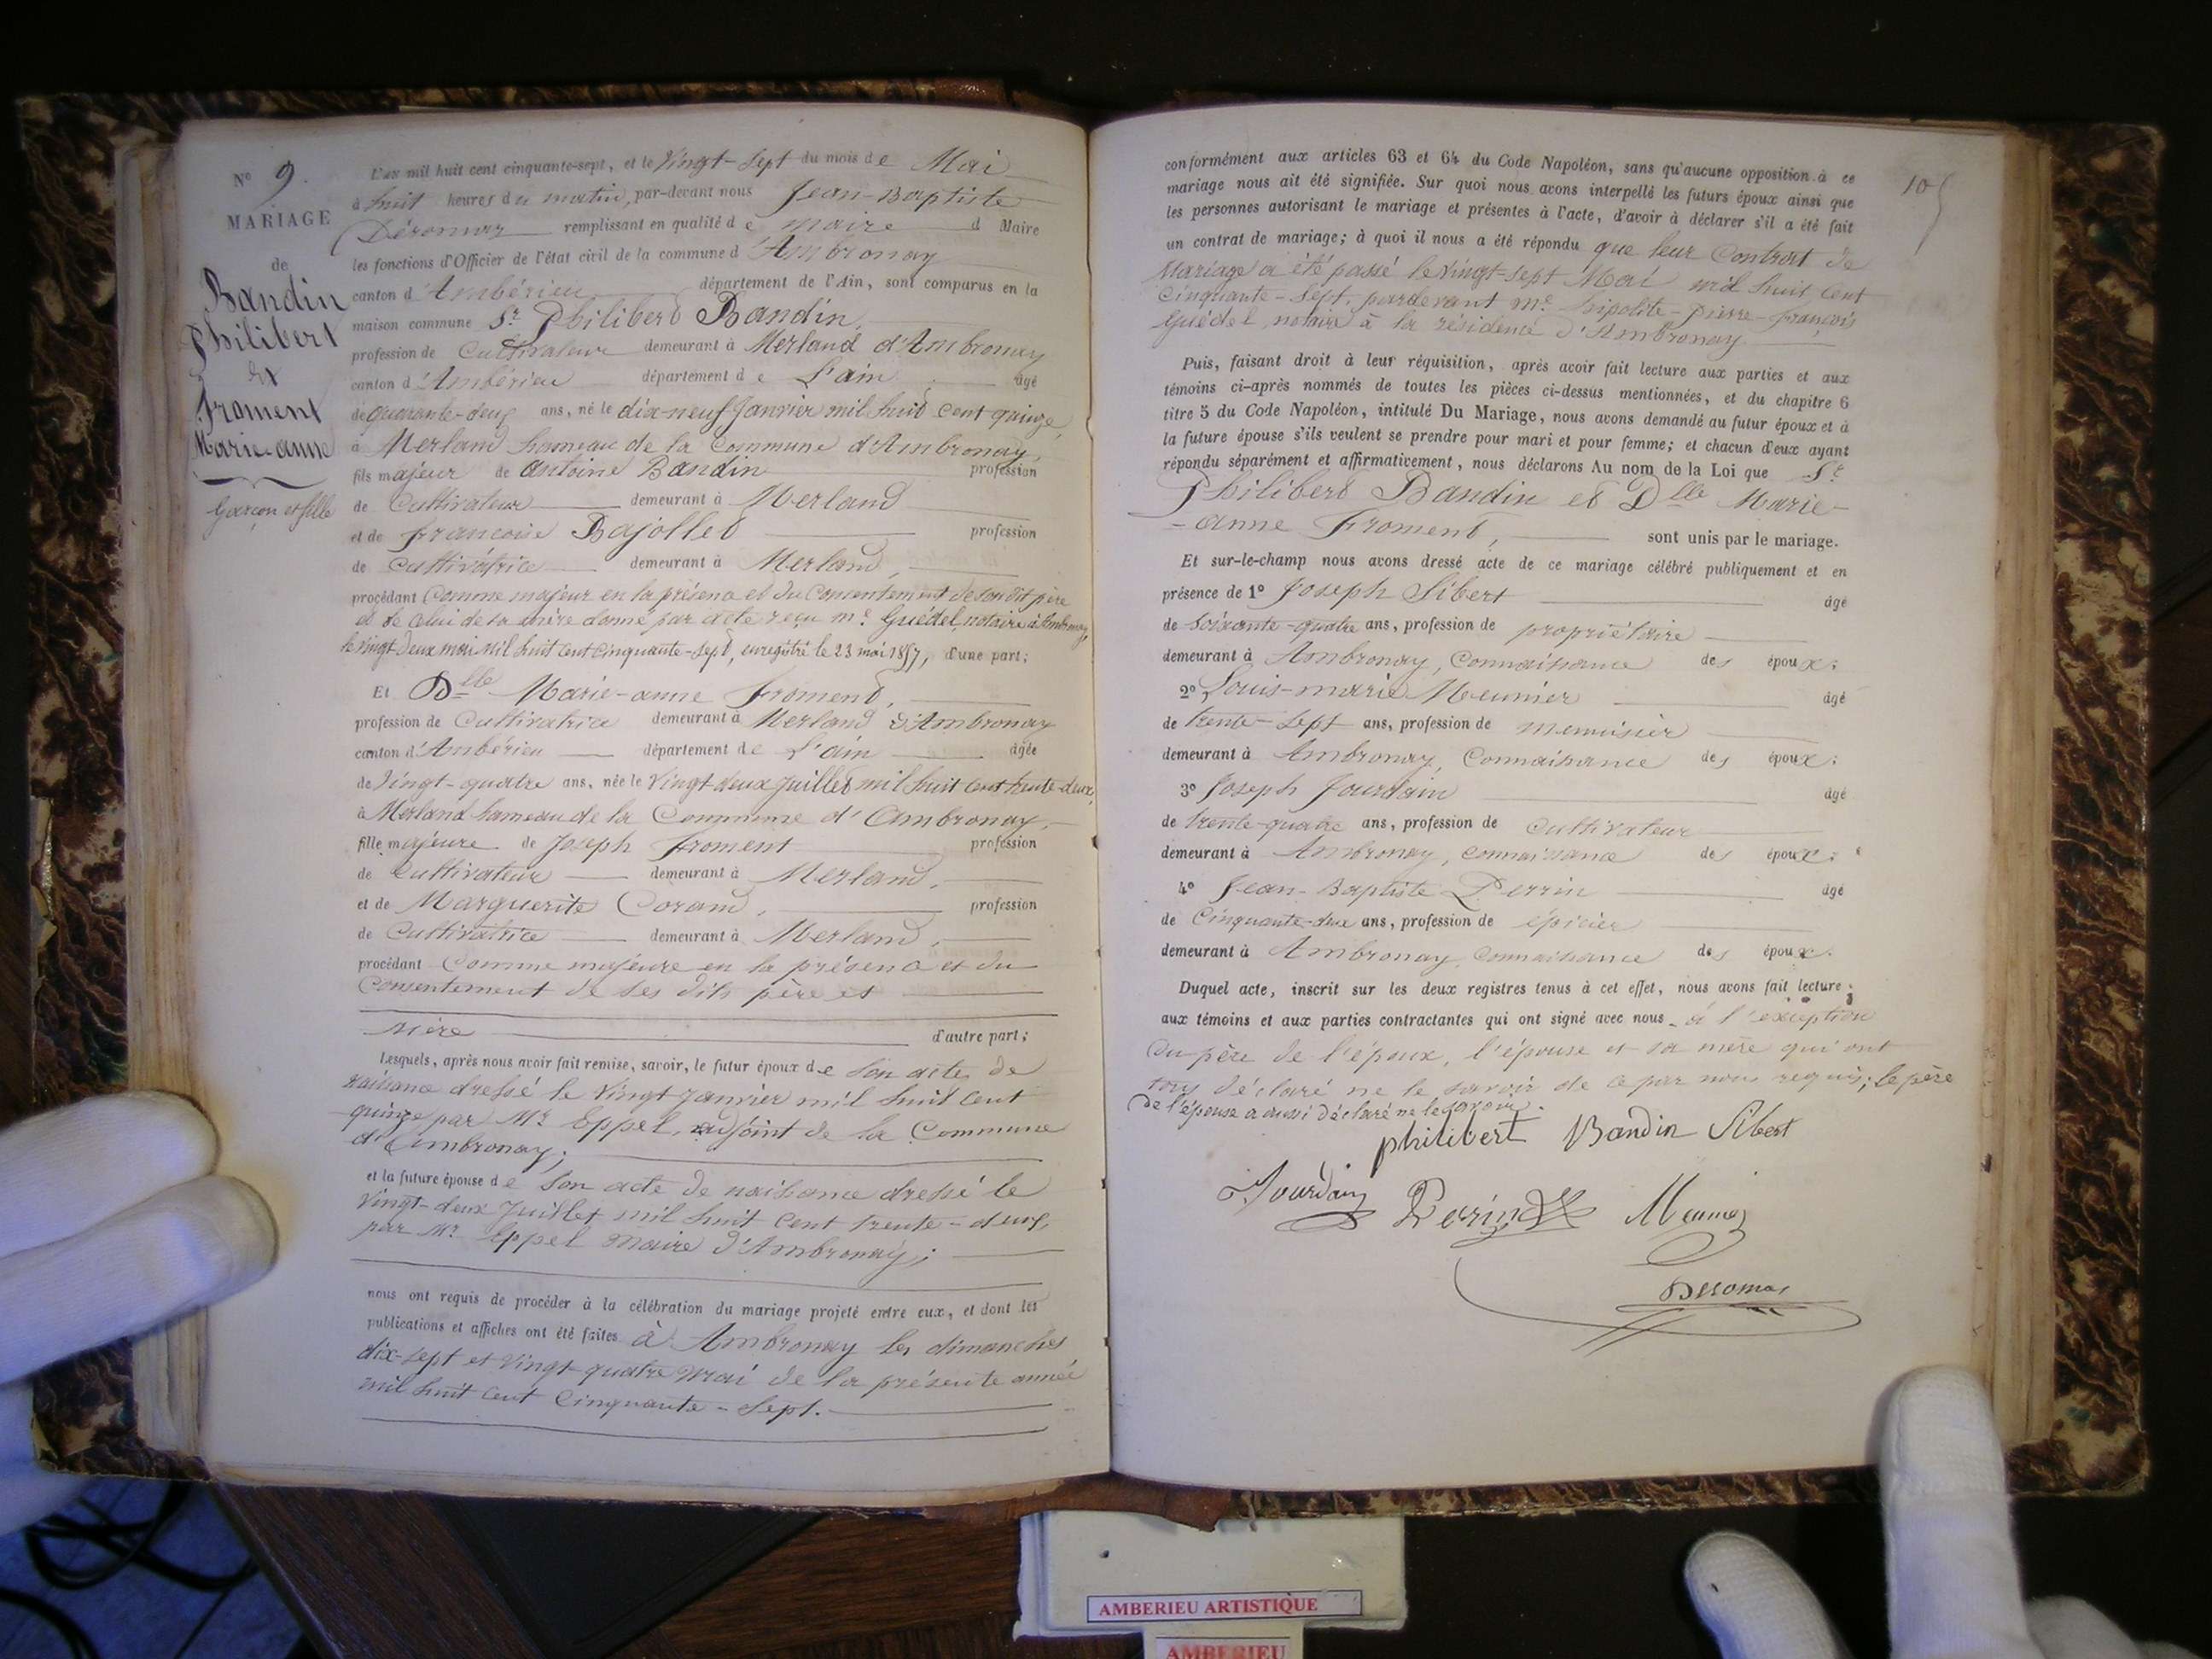 N° 9.
MARIAGE
de
Bandin
Philibert
et
Froment
Marie-anne
Garçon et fille
L'an mil huit cent cinquante-sept, et le Vingt-Sept du mois de Mai
à huit heures du matin, par-devant nous Jean-Baptiste
Déromas remplissant en qualité de maire d Maire
les fonctions d'Officier de l'état civil de la commune d'Ambronay
canton d'Ambérieu département de l'Ain, sont comparus en la
maison commune Sr Philibert Bandin,
profession de Cultivateur demeurant à Merland d'Ambronay
canton d'Ambérieu département de L'ain, âgé
de quarante-deux ans, né le dix-neuf Janvier mil huit cent quinze,
à Merland hameau de la Commune d'Ambronay,
fils majeur de Antoine Bandin profession
de Cultivateur demeurant à Merland
et de Francoise Bajollet profession
de Cultivatrice demeurant à Merland,
procédant Comme majeur en la présence et du Consentement de son dit père
et de Celui de sa mère donné par acte reçu me Guédel, notaire à Ambronay,
le vingt-deux mai mil huit cent cinquante-sept, enregistré le 23 mai 1857, d'une part;
Et Dlle Marie-anne Froment,
profession de Cultivatrice demeurant à Merland d'Ambronay
canton d'Ambérieu département de L'ain âgée
de Vingt-quatre ans, née le Vingt deux Juillet mil huit cent trente-deux,
à Merland hameau de la Commune d'Ambronay,
fille majeure de Joseph Froment profession
de Cultivateur demeurant à Merland,
et de Marguerite Corand, profession
de Cultivatrice demeurant à Merland,
procédant Comme majeure en la présence et du
Consentement de ses dits père et
mère d'autre part;
Lesquels, après nous avoir fait remise, savoir, le futur époux de Son acte de
naissance dressé le Vingt Janvier mil huit Cent
quinze par Mr Eppel, adjoint de la Commune
d'Ambronay;
et la future épouse de Son acte de naissance dressé le
Vingt-deux Juillet mil huit Cent trente-deux,
par Mr Eppel maire d'Ambronay;
nous ont requis de procéder à la célébration du mariage projeté entre eux, et dont les
publications et affiches ont été faites à Ambronay les dimanches
dix-sept et vingt-quatre Mai de la présente année
mil huit Cent Cinquante-Sept.
105
conformément aux articles 63 et 64 du Code Napoléon, sans qu'aucune opposition à ce
mariage nous ait été signifiée. Sur quoi nous avons interpellé les futurs époux ainsi que
les personnes autorisant le mariage et présentes à l'acte, d'avoir à déclarer s'il a été fait
un contrat de mariage; à quoi il nous a été répondu que leur Contrat de
Mariage a été passé le Vingt-sept Mai mil huit Cent
Cinquante-Sept, pardevant me hipolite-pierre-françois
Guédel, notaire à la résidence d'Ambronay
Puis, faisant droit à leur réquisition, après avoir fait lecture aux parties et aux
témoins ci-après nommés de toutes les pièces ci-dessus mentionnées, et du chapitre 6
titre 5 du Code Napoléon, intitulé Du Mariage, nous avons demandé au futur époux et à
la future épouse s'ils veulent se prendre pour mari et pour femme; et chacun d'eux ayant
répondu séparément et affirmativement, nous déclarons Au nom de la Loi que Sr
Philibert Bandin et Dlle Marie-
-anne Froment, sont unis par le mariage.
Et sur-le-champ nous avons dressé acte de ce mariage célébré publiquement et en
présence de 1° Joseph Sibert âgé
de Soixante-quatre ans, profession de propriétaire
demeurant à Ambronay, Connaissance des époux;
2° Louis-marie Meunier âgé
de trente-Sept ans, profession de menuisier
demeurant à Ambronay, Connaissance des époux;
3° Joseph Jourdain âgé
de trente-quatre ans, profession de Cultivateur
demeurant à Ambronay, connaissance des époux;
4° Jean-Baptiste Perrin âgé
de Cinquante-deux ans, profession de épicier
demeurant à Ambronay, Connaissance des époux.
Duquel acte, inscrit sur les deux registres tenus à cet effet, nous avons fait lecture
aux témoins et aux parties contractantes qui ont signé avec nous à l'exception
du père de l'époux, l'épouse et sa mère qui ont
tous déclaré ne le savoir de ce par nous requis; le père
de l'épouse a aussi déclaré ne le savoir.
philibert Bandin Sibert
Jourdain Perrin Meunier
Deromas
AMBERIEU ARTISTIQUE
AMBERIEU